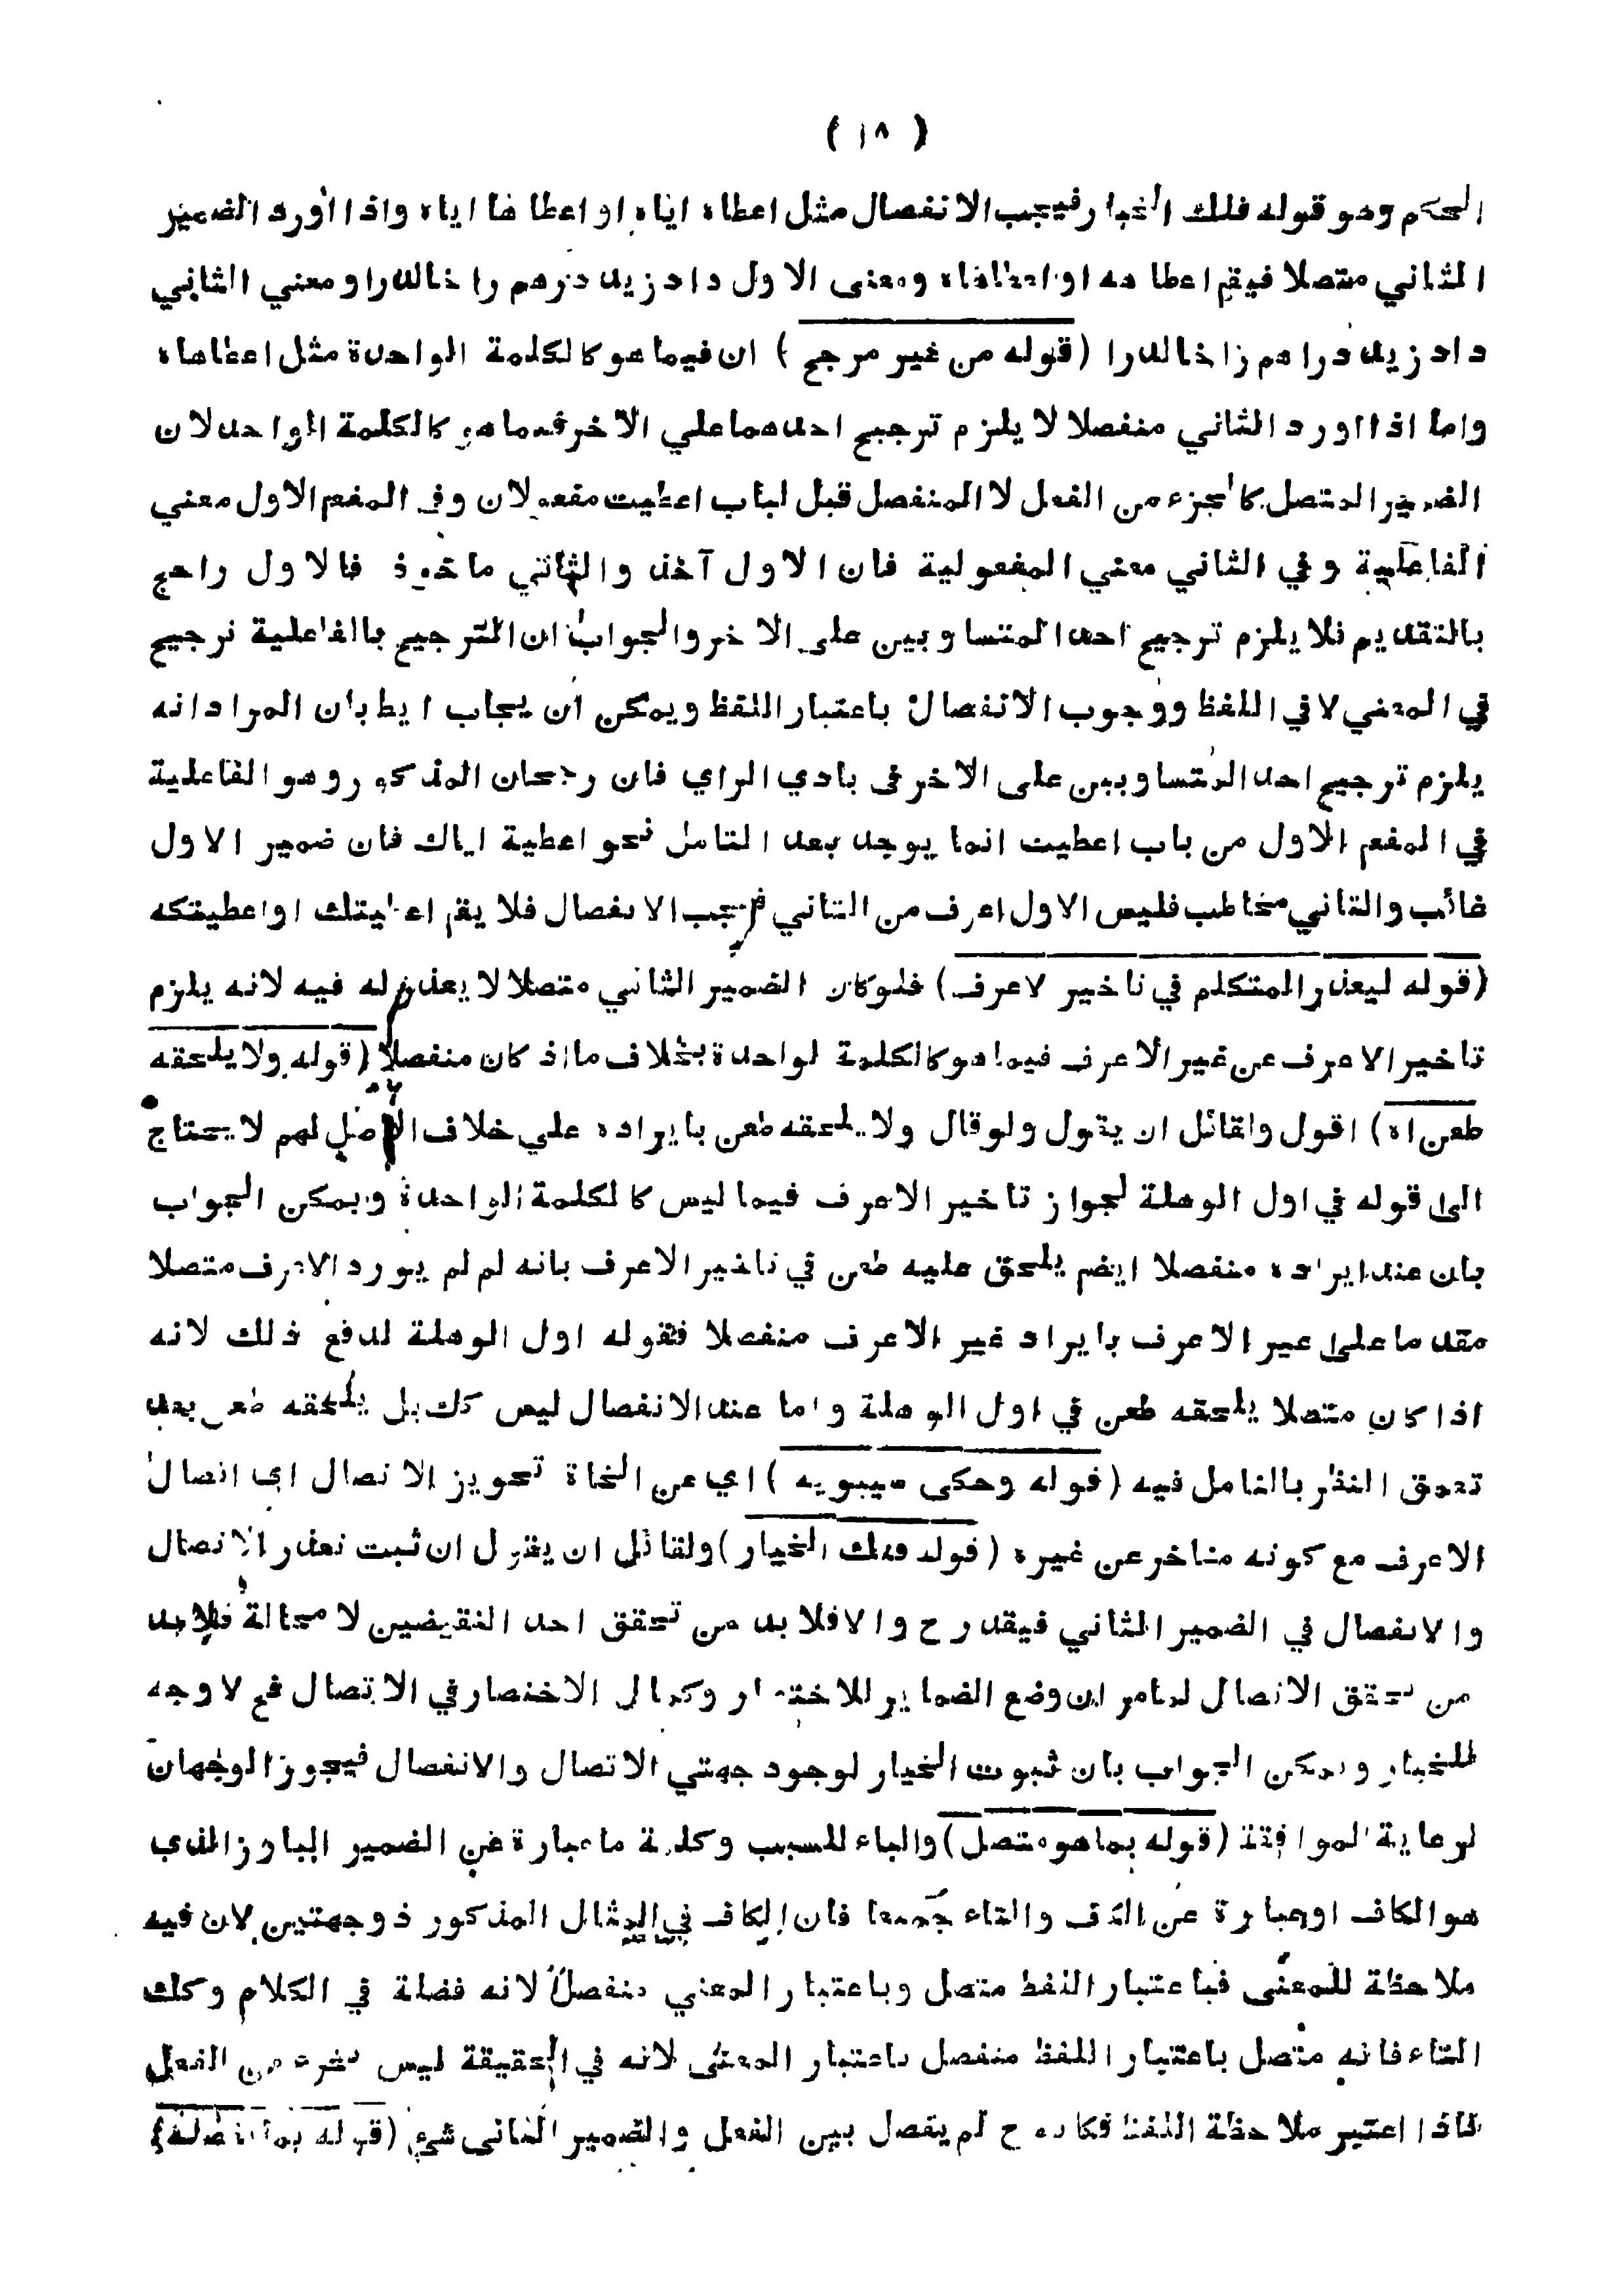 ( ١٨ )
الحكم وهو قوله فلك الخيار فيجب الانفصال مثل اعطاه اياه او اعطا ها اياه واذا اورد الضمير
الثاني متصلا فيقم اعطا هه او اعطاهاه ومعنى الاول داد زيد درهم را خالد را و معني الثاني
داد زيد دراهم را خالد را (قوله من غير مرجح) ان فيما هو كالكلمة الواحدة مثل اعطاهاه
واما اذا اورد الثاني منفصلا لا يلزم ترجيح احدهما علي الآخر فيما هو كالكلمة الواحد لان
الضمير المتصل كالجزء من الفعل لا المنفصل قبل لباب اعطيت مفعولان وفي المفعم الاول معني
الفاعلية وفي الثاني معني المفعولية فان الاول آخذ والثاني ماخوذ فالاول راجح
بالتقديم فلا يلزم ترجيح احد المتساويين على الاخر والجواب ان الترجيح بالفاعلية ترجيح
في المعني لا في اللفظ ووجوب الانفصال باعتبار اللفظ ويمكن ان يجاب ايط بان المراد انه
يلزم ترجيح احد المتساويين على الاخر فى بادي الراي فان رجحان المذكور وهو الفاعلية
في المفعم الاول من باب اعطيت انما يوجد بعد التامل نحو اعطية اياك فان ضمير الاول
غائب والثاني مخاطب فليس الاول اعرف من الثاني فيجب الانفصال فلا يقم اعطيتك او اعطيتكه
(قوله ليعذر المتكلم في تاخير لاعرف) فلو كان الضمير الثاني متصلا لا يعذر له فيه لانه يلزم
تاخير الاعرف عن غير الاعرف فيما هو كالكلمة لواحدة بخلاف ما اذ كان منفصلا (قوله ولا يلحقه
طعن اه) اقول ولقائل ان يقول ولو قال ولا يلحقه طعن بايراده علي خلاف الاصل لهم لا يحتاج
الى قوله في اول الوهلة لجواز تاخير الاعرف فيما ليس كالكلمة الواحدة ويمكن الجواب
بان عند ايراده منفصلا ايضم يلحق عليه طعن في تاخير الاعرف بانه لم لم يورد الاعرف متصلا
مقدما على عير الاعرف بايراد غير الاعرف منفصلا فقوله اول الوهلة لدفع ذلك لانه
اذا كان متصلا يلحقه طعن في اول الوهلة واما عند الانفصال ليس كك بل يلحقه طعن بعد
تعمق النظر بالتامل فيه (قوله وحكى سيبويه) اي عن النحاة تجويز الاتصال اي اتصال
الاعرف مع كونه متاخر عن غيره (قوله فلك الخيار) ولقائل ان يقول ان ثبت تعذر الاتصال
والانفصال في الضمير الثاني فيقدر ح والا فلا بد من تحقق احد النقيضين لا محالة فلا بد
من تحقق الاتصال لما مر ان وضع الضماير للاختصار وكمال الاختصار في الاتصال فح لا وجه
للخيار ويمكن الجواب بان ثبوت الخيار لوجود جهتي الاتصال والانفصال فيجوز الوجهان
لرعاية الموافقة (قوله بما هو متصل) والباء للسبب وكلمة ما عبارة عن الضمير البارز الذي
هو الكاف او عبارة عن الكف والتاء جميعا فان الكاف في المثال المذكور ذو جهتين لان فيه
ملاحظة للمعنى فباعتبار اللفظ متصل وباعتبار المعني منفصل لانه فضلة في الكلام وكك
التاء فانه متصل باعتبار اللفظ منفصل باعتبار المعنى لانه في الحقيقة ليس بجزء من الفعل
فاذا اعتبر ملاحظة اللفظ فكانه ح لم يفصل بين الفعل والضمير الثانى شئ (قوله بما انفصاله)